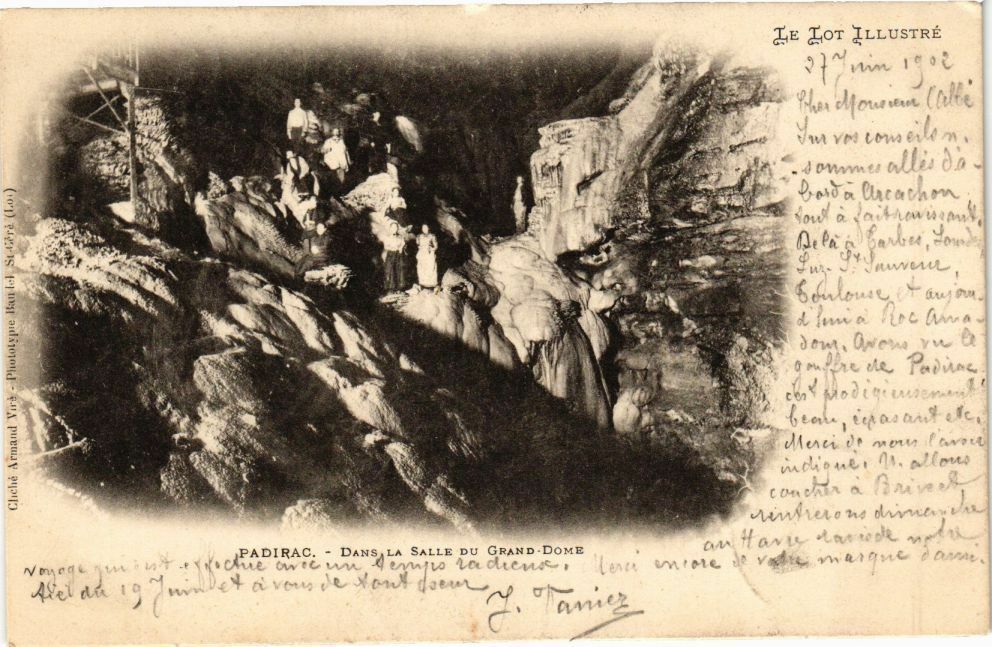 LE LOT ILLUSTRÉ
27 Juin 1902
Cher Monsieur l'abbé
Sur vos conseils n.
sommes allés d'a-
bord à Arcachon
tout à fait ravissant.
De là à Tarbes, Lourdes
Luz. St Sauveur,
Toulouse et aujour
d'hui à Roc Ama-
dour. Avons vu le
gouffre de Padirac
c'est prodigieusement
beau, épatant etc.
Merci de nous l'avoir
indiqué. N. allons
coucher à Brive et
rentrerons dimanche
au Havre de notre
voyage qui s'est effectué avec un temps radieux. Merci encore de votre marque d'ami-
tié du 19 Juin et à vous de tout coeur
J.
PADIRAC. - DANS LA SALLE DU GRAND-DOME
Cliché Armand Viré - Phototypie Baudel St-Céré (Lot)